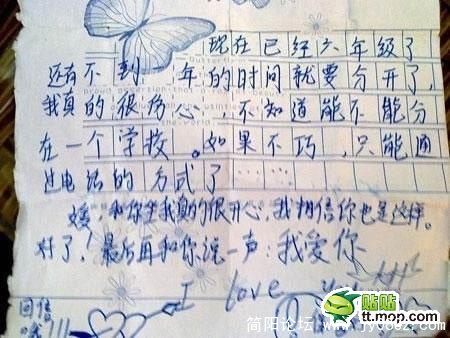 现在已经六年级了
还有不到一年的时间就要分开了，
我真的很伤心，不知道能不能分
在一个学校。如果不巧，只能通
过电话的方式了……
媛，和你坐我真的很开心，我相信你也是这样。
好了！最后再和你说一声：我爱你
I love you
回信
哦!!!
贴贴
tt.mop.com
简阳论坛